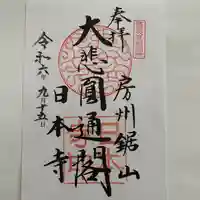 奉拝
房州鋸山
大悲圓通閣
日本寺
令和六年九月十五日